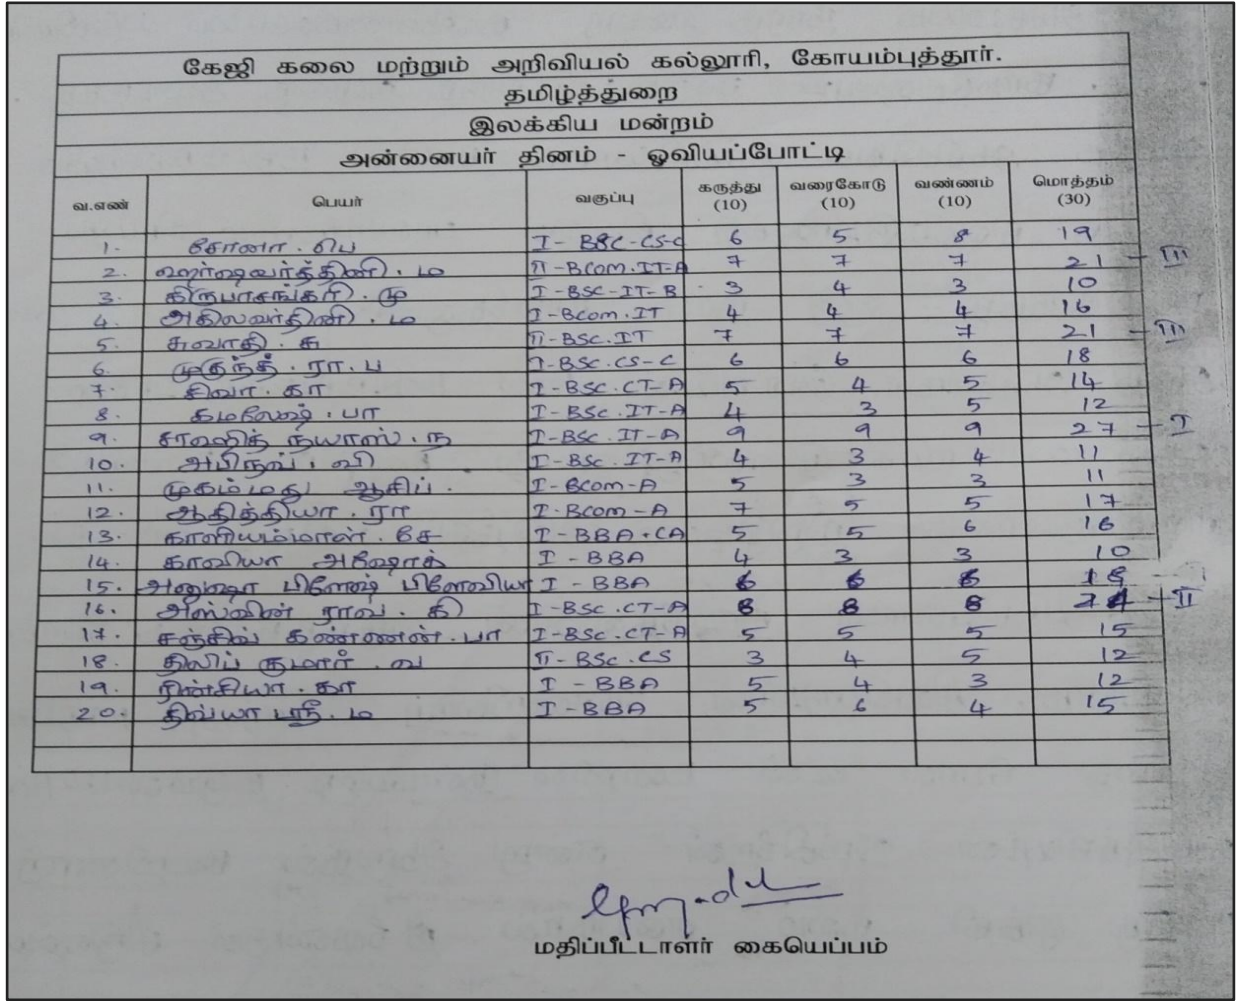 கேஜி கலை மற்றும் அறிவியல் கல்லூரி, கோயம்புத்தூர்.
தமிழ்த்துறை
இலக்கிய மன்றம்
அன்னையர் தினம் - ஓவியப்போட்டி
வ.எண் பெயர் வகுப்பு கருத்து (10) வரைகோடு (10) வண்ணம் (10) மொத்தம் (30)
1. சோனா . பெ I - BSC-CS-C 6 5 8 19
2. ஹர்ஷவர்த்தினி . ம II - BCom.IT-A 7 7 7 21 - III
3. கிருபாசங்கரி . மு I - BSC-IT-B 3 4 3 10
4. அகிலவர்தினி . ம I - Bcom.IT 4 4 4 16
5. சுவாதி . க II - BSC.IT 7 7 7 21 - III
6. முகுந்த் . ரா . ப I - BSC.CS-C 6 6 6 18
7. சிவா . கா I - BSC.CT-A 5 4 5 14
8. கமலேஷ் . பா I - BSC.IT-A 4 3 5 12
9. சாஹித் நியாஸ் . ந I - BSC.IT-A 9 9 9 27 - I
10. அபிநவ் . வி I - BSC.IT-A 4 3 4 11
11. முகம்மது ஆசிப் . I - Bcom-A 5 3 3 11
12. ஆதித்தியா . ரா I - Bcom-A 7 5 5 17
13. காளியம்மாள் . சே I - BBA.CA 5 5 6 16
14. காவியா அஷோக் I - BBA 4 3 3 10
15. அனுஷா I - BBA 6 6 6 18
16. அஸ்வின் ராவ் . கி I - BSC.CT-A 8 8 8 24 - II
17. சஞ்சிவ் கண்ணன் . பா I - BSc.CT-A 5 5 5 15
18. திலிப் குமார் . வ II - BSc.CS 3 4 5 12
19. ரின்சியா . கா I - BBA 5 4 3 12
20. திவ்யா ஸ்ரீ . ம I - BBA 5 6 4 15
மதிப்பீட்டாளர் கையெப்பம்